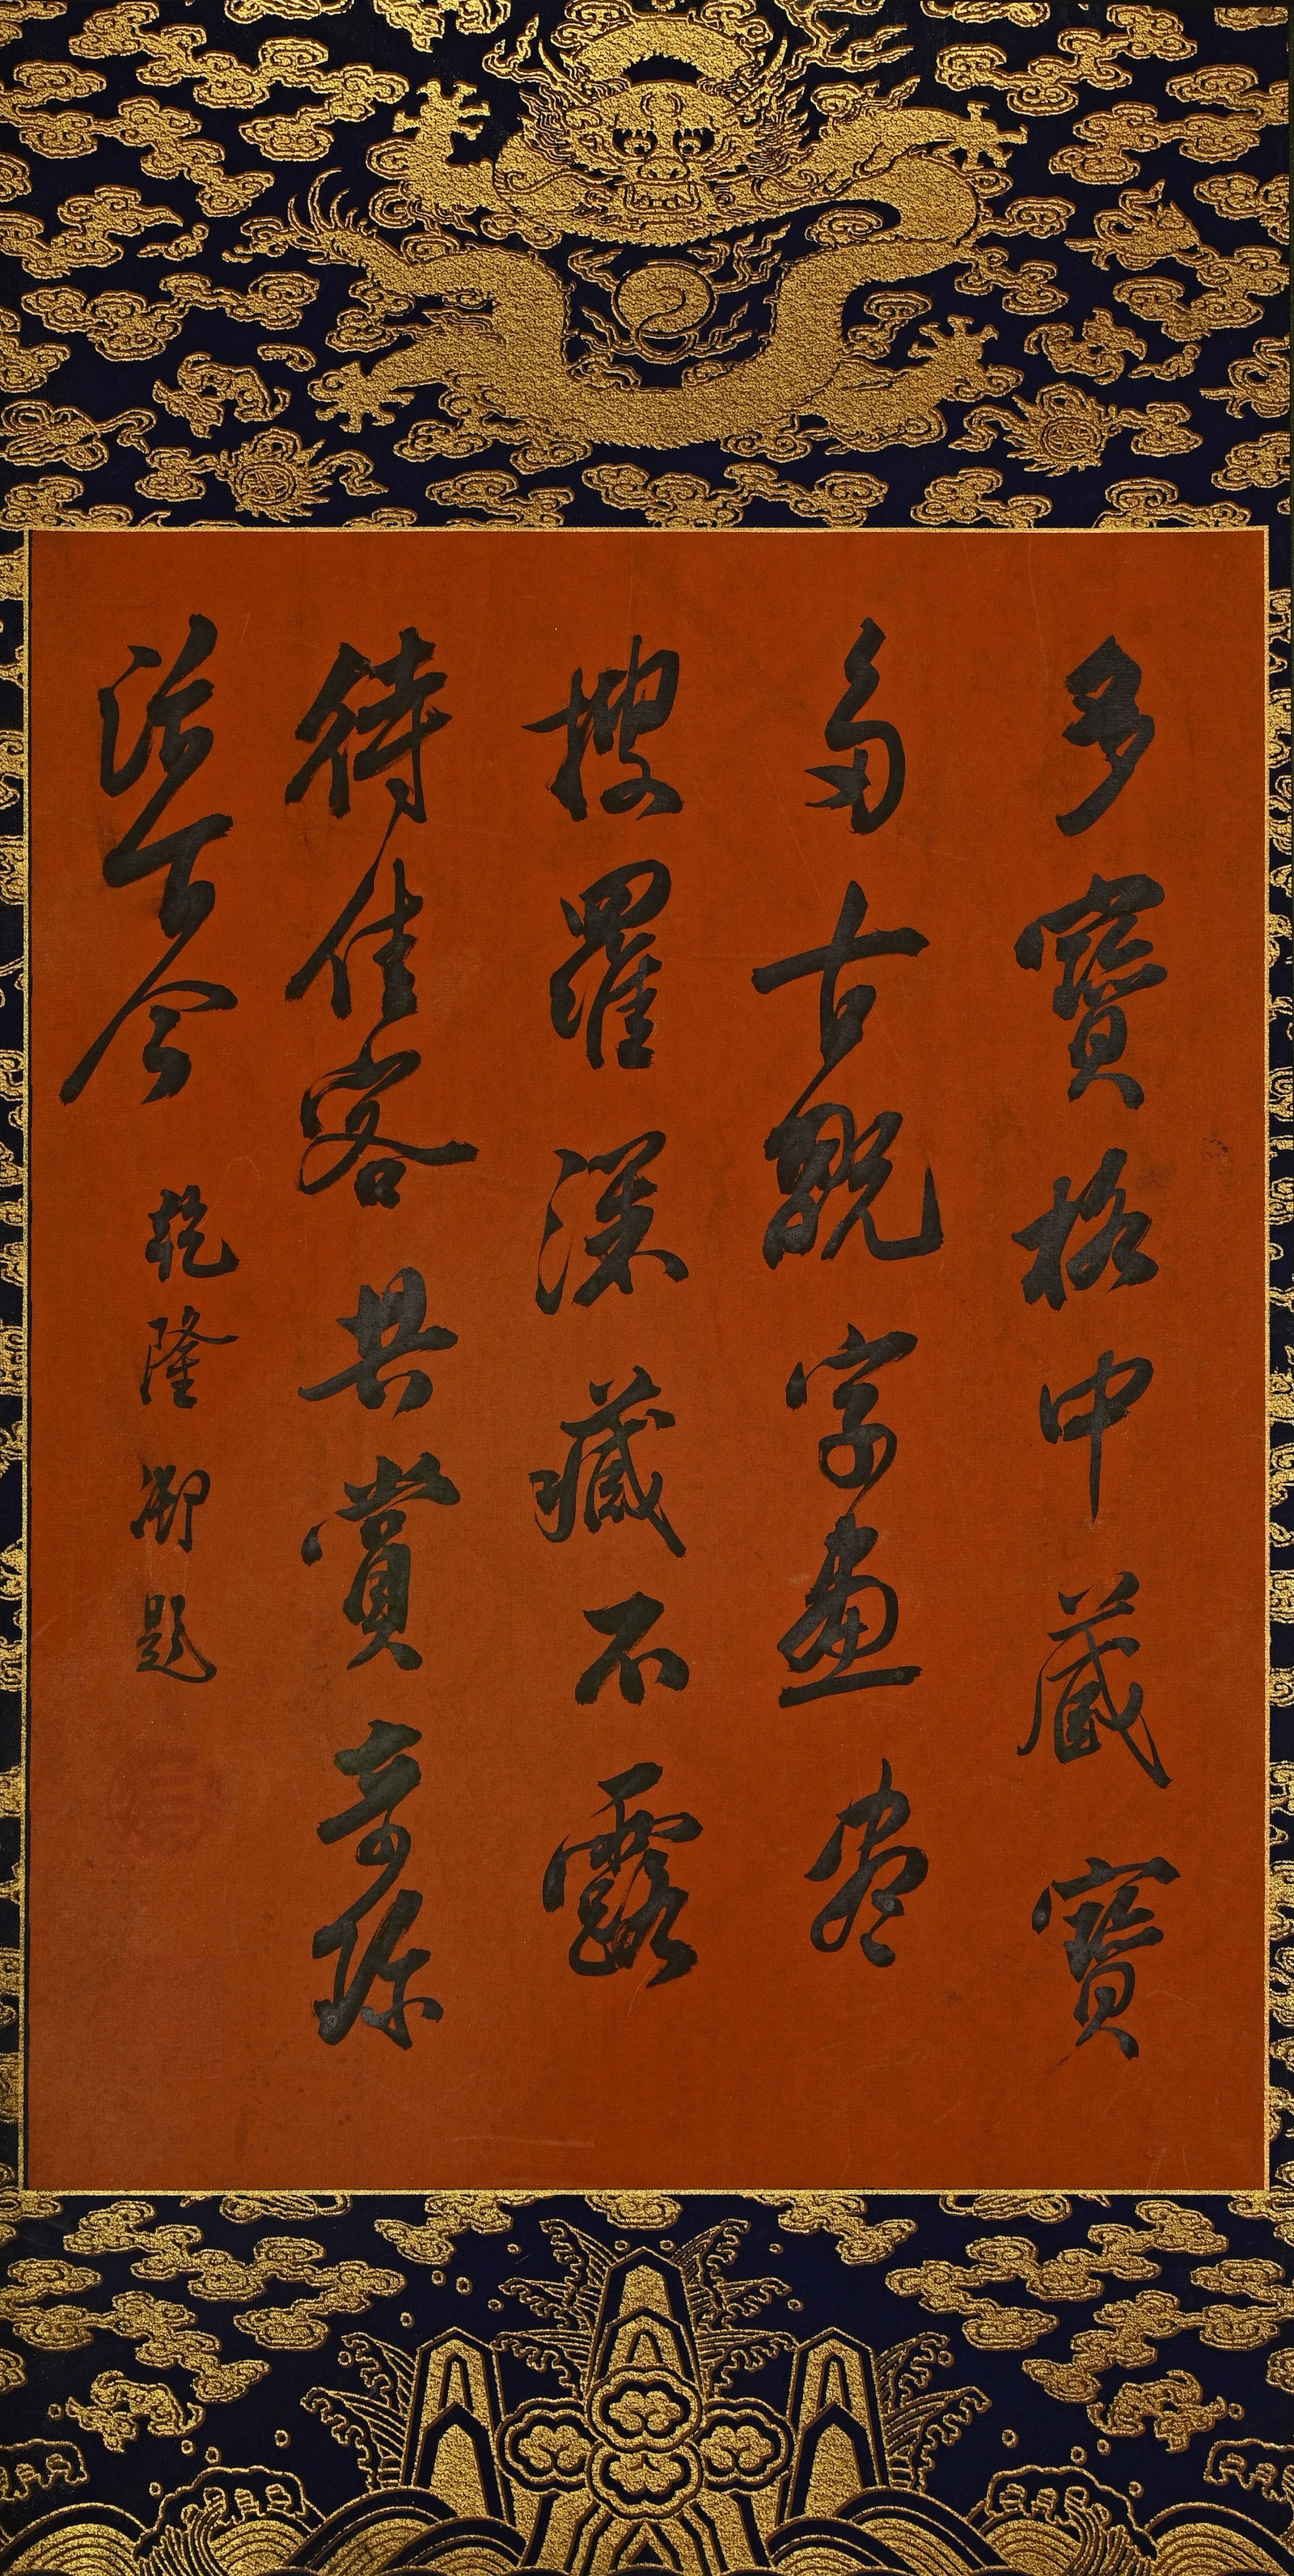 多寶格中藏寶
多古觀字畫卷
搜羅深藏不露
待佳客共賞奇珍
論古今 乾隆御題